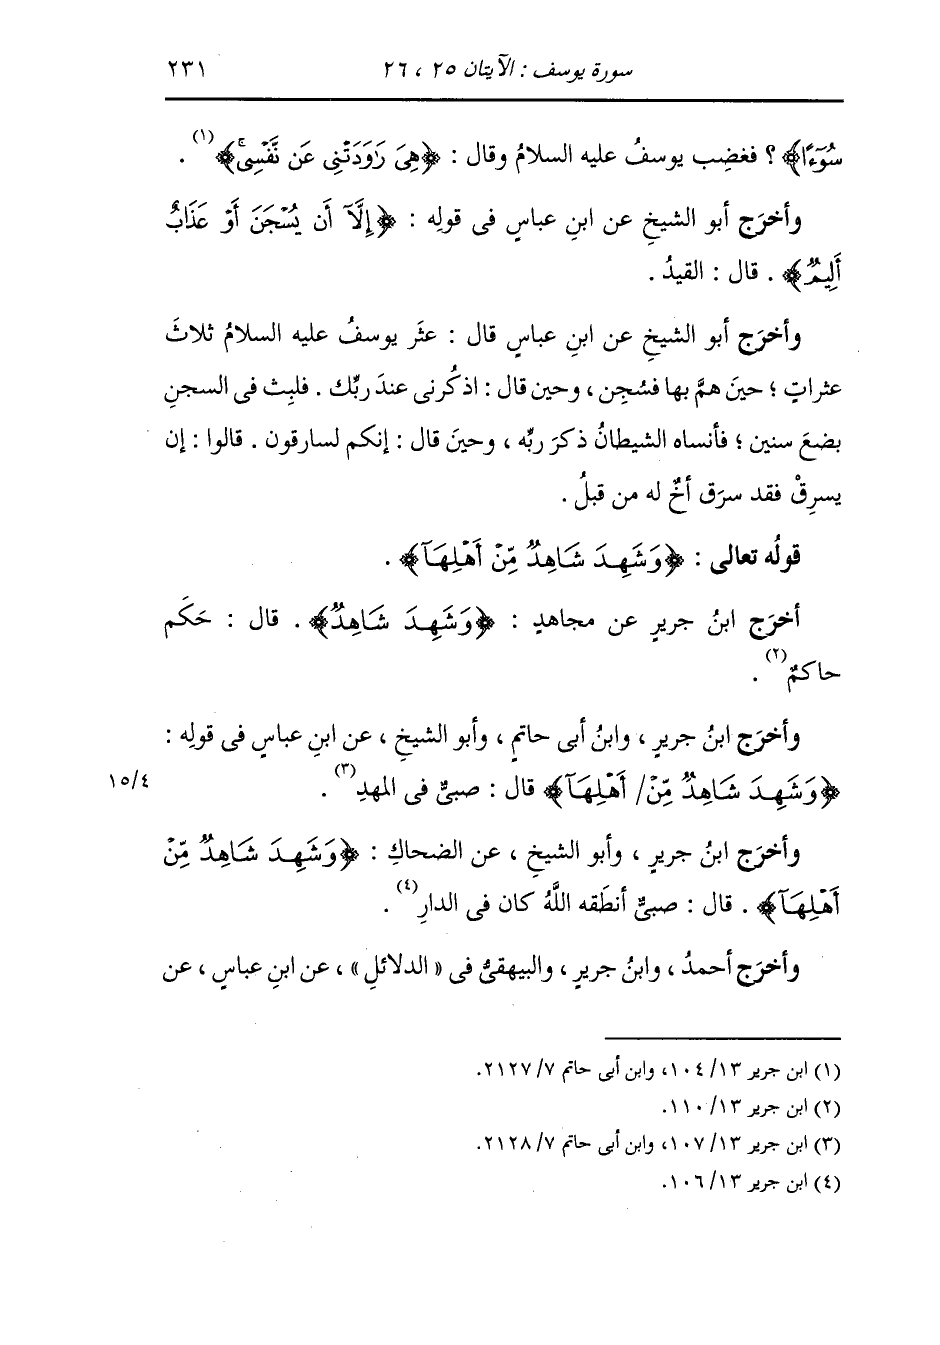 سورة يوسف : الآيتان ٢٥ ، ٢٦ ٢٣١
سُوٓءًا﴾ ؟ فغضِب يوسفُ عليه السلامُ وقال : ﴿هِىَ رَٰوَدَتْنِى عَن نَّفْسِىۚ﴾(١) .
وأخرَج أبو الشيخِ عن ابنِ عباسٍ فى قولِه : ﴿إِلَّآ أَن يُسْجَنَ أَوْ عَذَابٌ
أَلِيمٌ﴾ . قال : القيدُ .
وأخرَج أبو الشيخِ عن ابنِ عباسٍ قال : عثَر يوسفُ عليه السلامُ ثلاثَ
عثراتٍ ؛ حينَ همَّ بها فسُجِن ، وحين قال : اذكُرنى عندَ ربِّك . فلبِث فى السجنِ
بضعَ سنين ؛ فأنساه الشيطانُ ذكرَ ربِّه ، وحينَ قال : إنكم لسارقون . قالوا : إن
يسرِقْ فقد سرَق أخٌ له من قبلُ .
قولُه تعالى : ﴿وَشَهِدَ شَاهِدٌ مِّنْ أَهْلِهَآ﴾ .
أخرَج ابنُ جريرٍ عن مجاهدٍ : ﴿وَشَهِدَ شَاهِدٌ﴾ . قال : حَكَم
حاكمٌ(٢) .
وأخرَج ابنُ جريرٍ ، وابنُ أبى حاتمٍ ، وأبو الشيخِ ، عن ابنِ عباسٍ فى قولِه :
﴿وَشَهِدَ شَاهِدٌ مِّنْ/ أَهْلِهَآ﴾ قال : صبىٌّ فى المهدِ(٣) . ١٥/٤
وأخرَج ابنُ جريرٍ ، وأبو الشيخِ ، عن الضحاكِ : ﴿وَشَهِدَ شَاهِدٌ مِّنْ
أَهْلِهَآ﴾ . قال : صبىٌّ أنطَقه اللَّهُ كان فى الدارِ(٤) .
وأخرَج أحمدُ ، وابنُ جريرٍ ، والبيهقىُّ فى « الدلائلِ » ، عن ابنِ عباسٍ ، عن
(١) ابن جرير ١٣/ ١٠٤، وابن أبى حاتم ٧/ ٢١٢٧.
(٢) ابن جرير ١٣/ ١١٠.
(٣) ابن جرير ١٣/ ١٠٧، وابن أبى حاتم ٧/ ٢١٢٨.
(٤) ابن جرير ١٣/ ١٠٦.